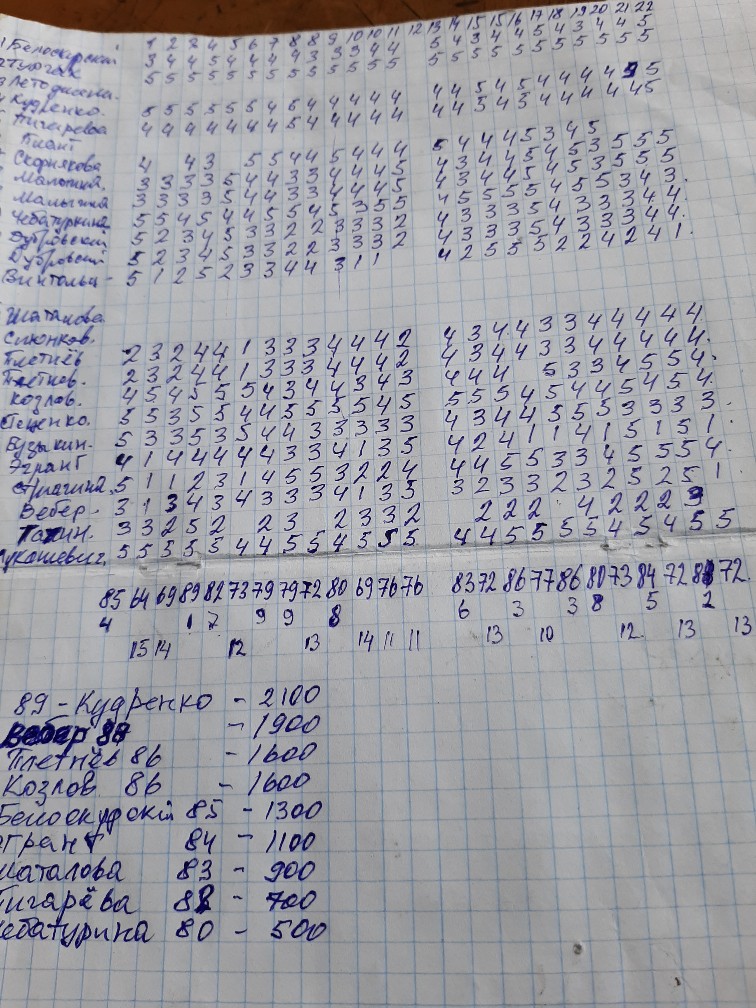 1 2 3 4 5 6 7 8 8 9 10 10 11 12 13 14 15 15 16 17 18 19 20 21 22
1 Белоскурский 3 4 4 5 4 4 4 3 3 3 4 4
5 5 5 5 5 5 5 5 5 5 5 5
Кудренко. 5 5 5 5 5 5 4 5 4 4 4 4 4 4 5 4 5 4 4 4 4 5
Пигарева 4 4 4 4 4 4 4 5 4 4 4 4 4 4 5 4 5 4 4 4 4 4 5
Пиант
Скорнякова 4 4 3 5 5 4 4 5 4 4 4 5 4 4 4 5 3 4 5
Малютина. 3 3 3 3 5 4 4 3 3 4 4 4 5 4 3 4 4 5 4 5 3 5 5 5
Малыгина 3 3 3 3 5 4 4 3 3 4 4 4 5 4 3 4 4 5 4 5 3 5 5 5
Чебатуркина 5 5 4 5 4 4 5 5 4 5 3 5 5 4 5 5 5 5 4 5 5 3 4 3.
Дубровский 5 2 3 4 5 3 3 2 2 3 3 3 2 4 3 3 3 5 4 3 3 3 4 4
Дубровский 5 2 3 4 5 3 3 2 2 3 3 3 2 4 3 3 3 5 4 3 3 3 4 4.
5 1 2 5 2 3 3 4 4 3 1 1 4 2 5 5 5 2 2 4 2 4 1.
Шаталова
Сиюнков.
Плотнёв 2 3 2 4 4 1 3 3 3 4 4 4 2 4 3 4 4 3 3 4 4 4 4 4
Плетнев. 2 3 2 4 4 1 3 3 3 4 4 4 2 4 3 4 4 3 3 4 4 4 4 4.
Козлов. 4 5 4 5 5 5 4 3 4 4 3 4 3 4 4 4 5 3 3 4 5 5 4.
5 5 3 5 5 4 4 5 5 5 5 4 5 5 5 5 4 5 4 4 5 4 5 4.
Бузыкин. 5 3 3 5 3 5 4 4 3 3 3 3 3 4 3 4 4 5 5 5 3 3 3 3
Эгрант 4 1 4 4 4 4 4 3 3 4 1 3 5 4 2 4 1 1 4 1 5 1 5 1.
5 1 1 2 3 1 4 5 5 3 2 2 4 4 4 5 5 3 3 4 5 5 5 4
Вебер - 3 1 3 4 3 4 3 3 3 4 1 3 5 3 2 3 3 2 3 2 5 2 5 1
3 3 2 5 2 2 3 2 3 3 2 2 2 2 4 2 2 2 3
Лукашевич. 5 5 5 5 5 4 4 5 5 4 5 5 5 4 4 5 5 5 5 4 5 4 5 5
85 64 69 89 82 73 79 79 72 80 69 76 76 83 72 86 77 86 80 73 84 72 72
4 1 7 9 9 8 6 3 3 8 5 2
15 14 12 13 14 11 11 13 10 12. 13 13
89 - Кудренко - 2100
- 1900
Плетнёв 86 - 1600
Козлов 86 - 1600
Белоскудский 85 - 1300
Эгрант 84 - 1100
Шаталова 83 - 900
Пигарёва 82 - 700
Чебатурина 80 - 500